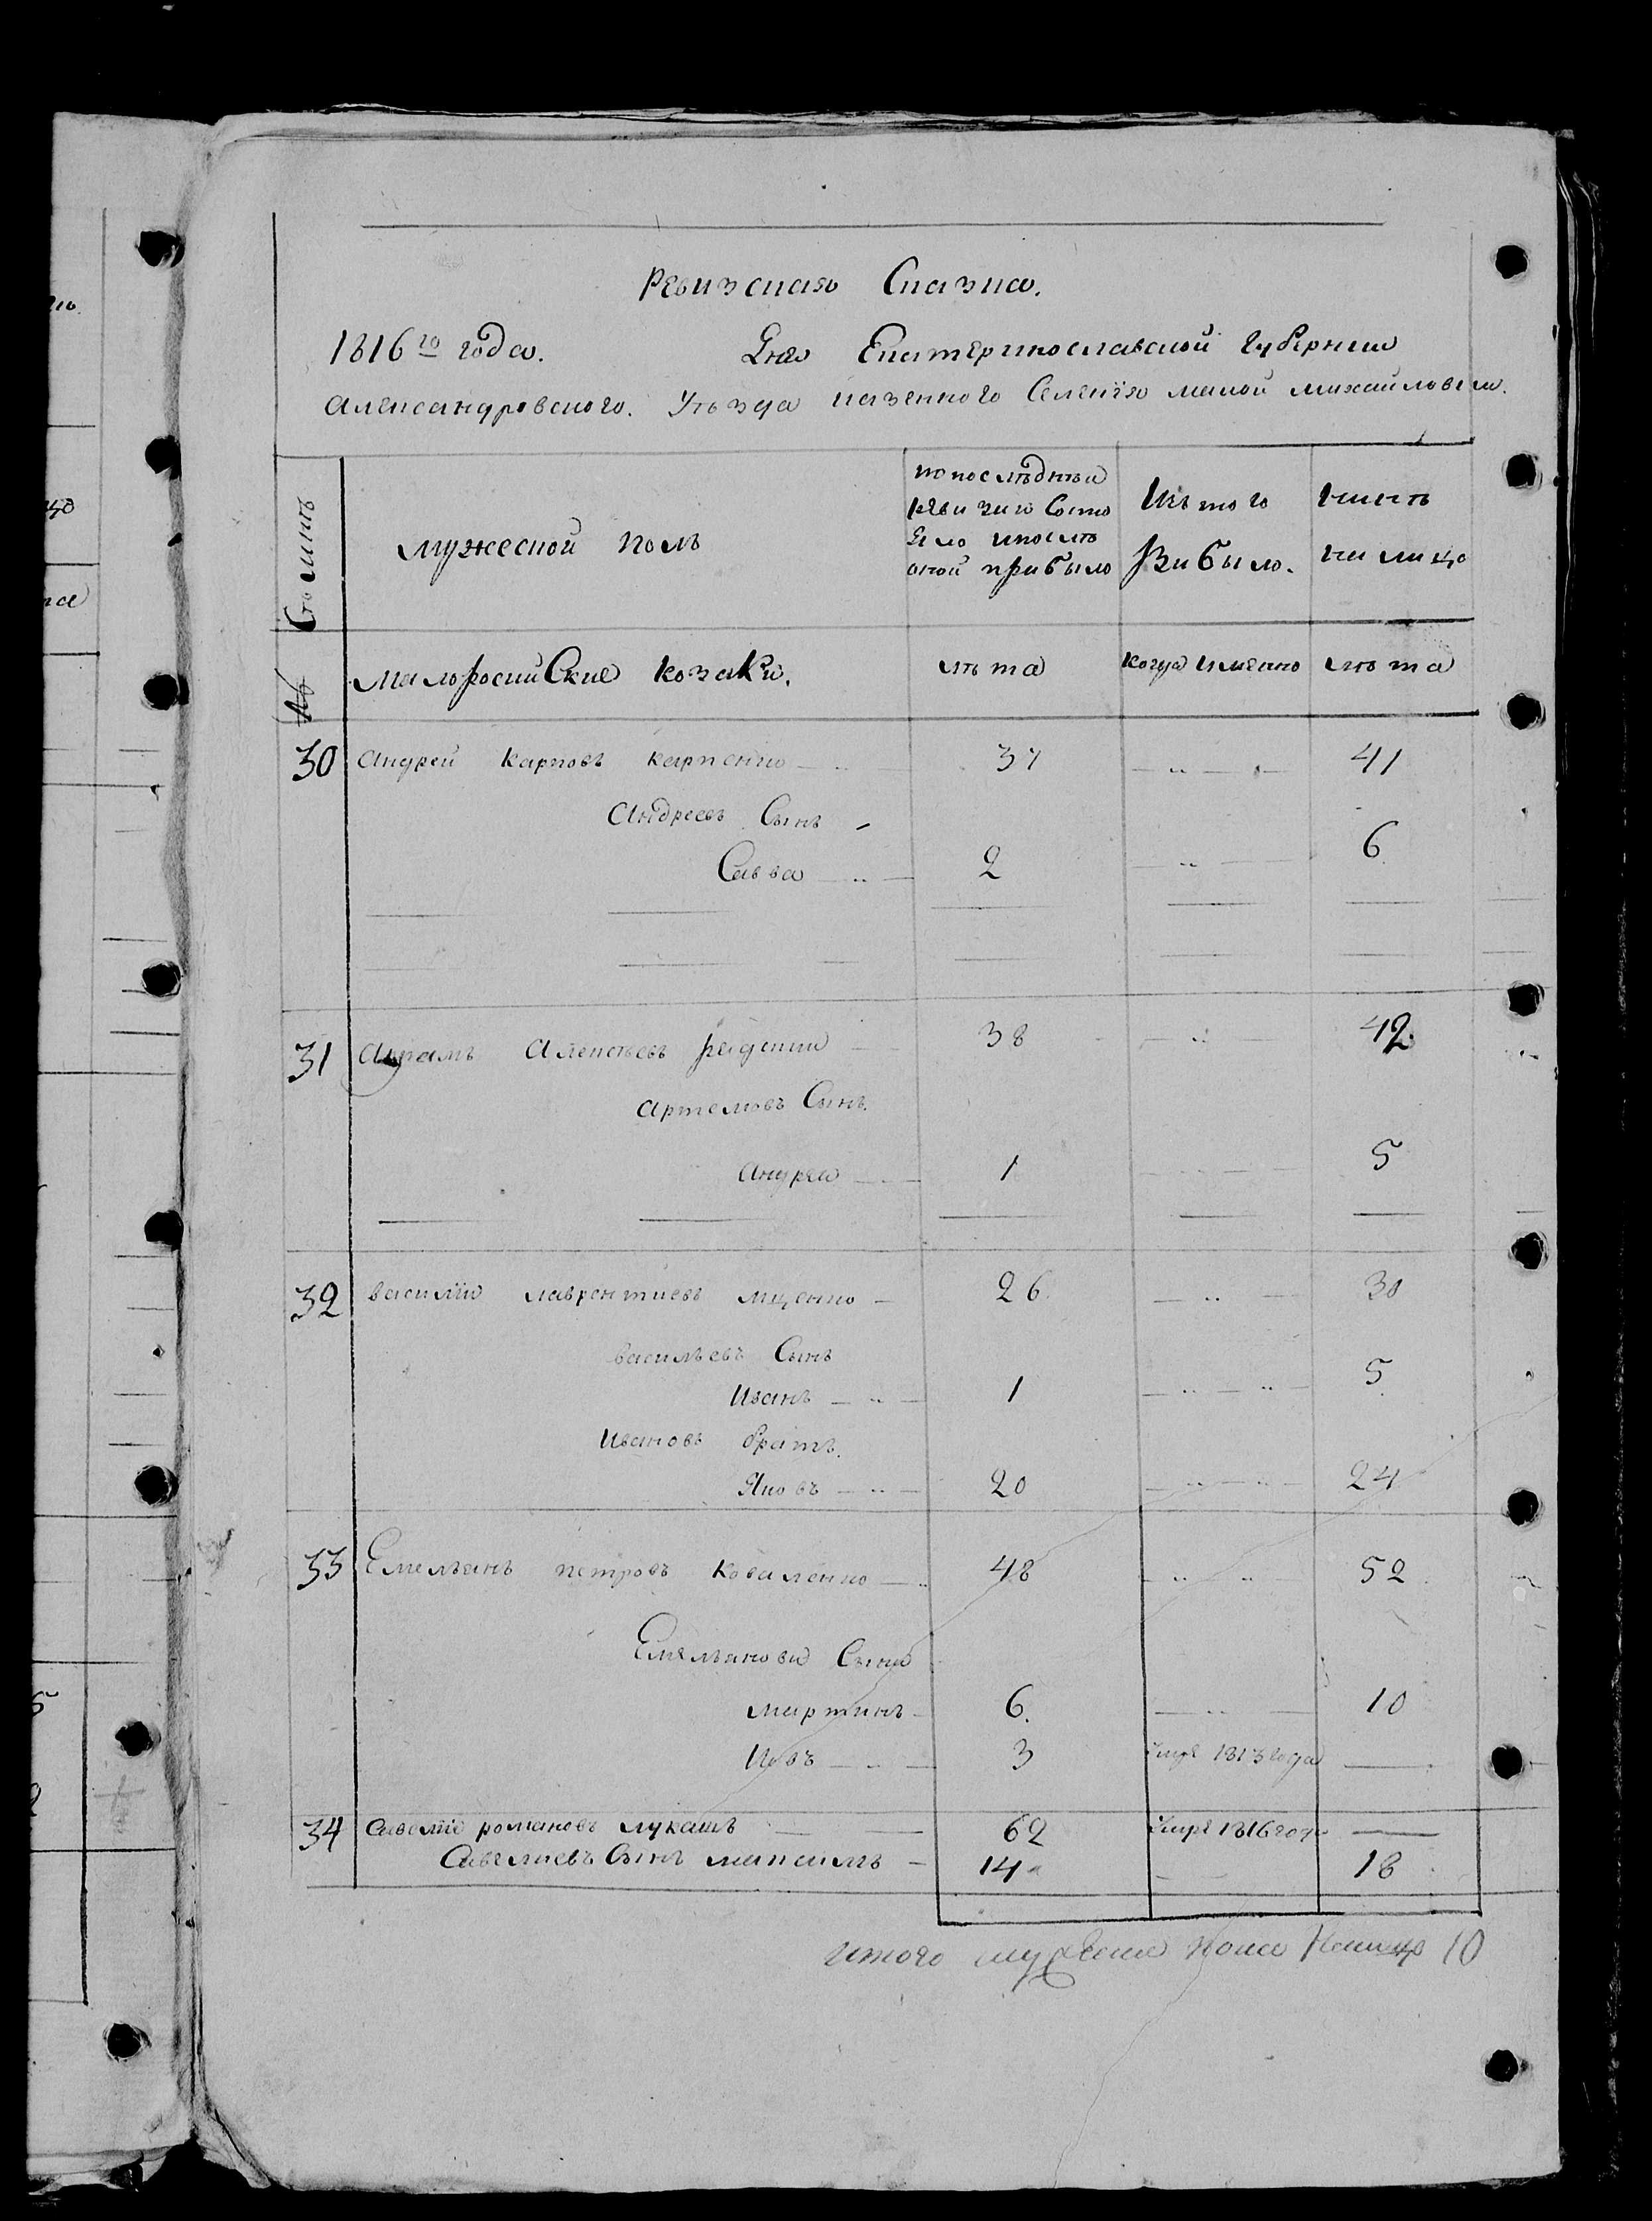 Ревизская Сказка.
1816го года. Дня Екатеринославской Губернии
Александровского. Уѣзда казенного Селенїя малой михайловки.
Стомить
№
мужеской полъ
по послѣднѣй ревизии Состояло и послѣ оной прибыло
Изъ того Выбыло.
Нынѣ на лицо
малоросийские козаки.
лѣта
когда имѣнно
лѣта
30 Андрей карповъ карпенко 37 41
Андреевъ Сынъ
Савва 2 6
31 Алексѣевъ 38 42
артемовъ Сынъ
андрей 1 5
32 василїй лаврентиевъ мценко 26 30
васильевъ Сынъ
Иванъ 1 5
Ивановъ братъ
Яковъ 20 24
33 Емельянъ петровъ коваленко 48 52
Емельянови Сыни
мартинъ 6 10
Иовъ 3 умре 1813 года
34 Савелїй романовъ лукашъ 62 умре 1816 году
Савелиевъ Сынъ максимъ 14 18
итого мужеска пола налицо 10